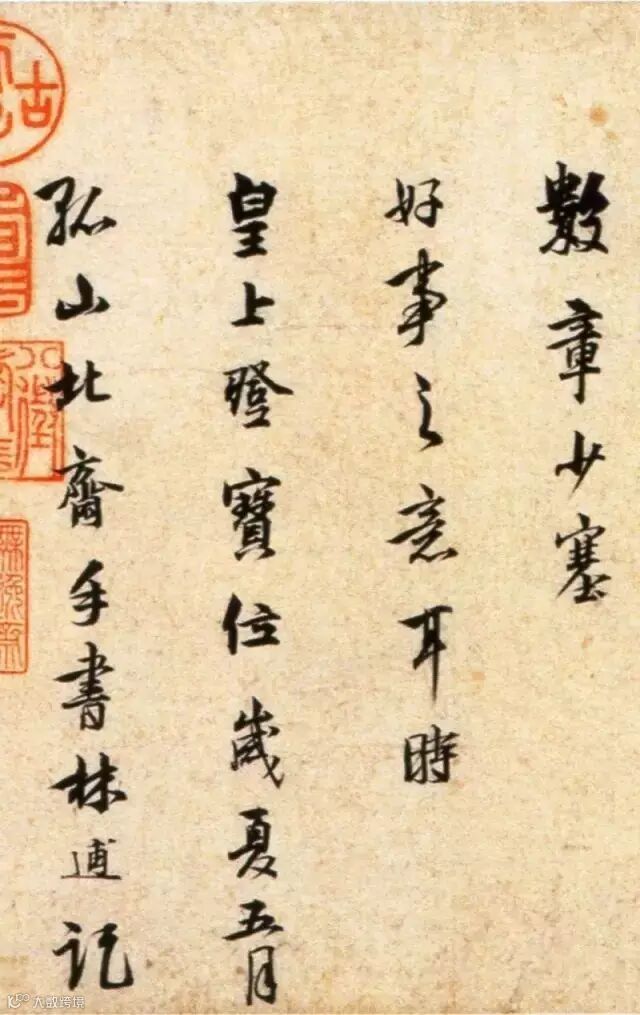 數章少塞
好事之意耳時
皇上登寶位歲夏五月
孤山北齋手書林逋記
古
大數跨境